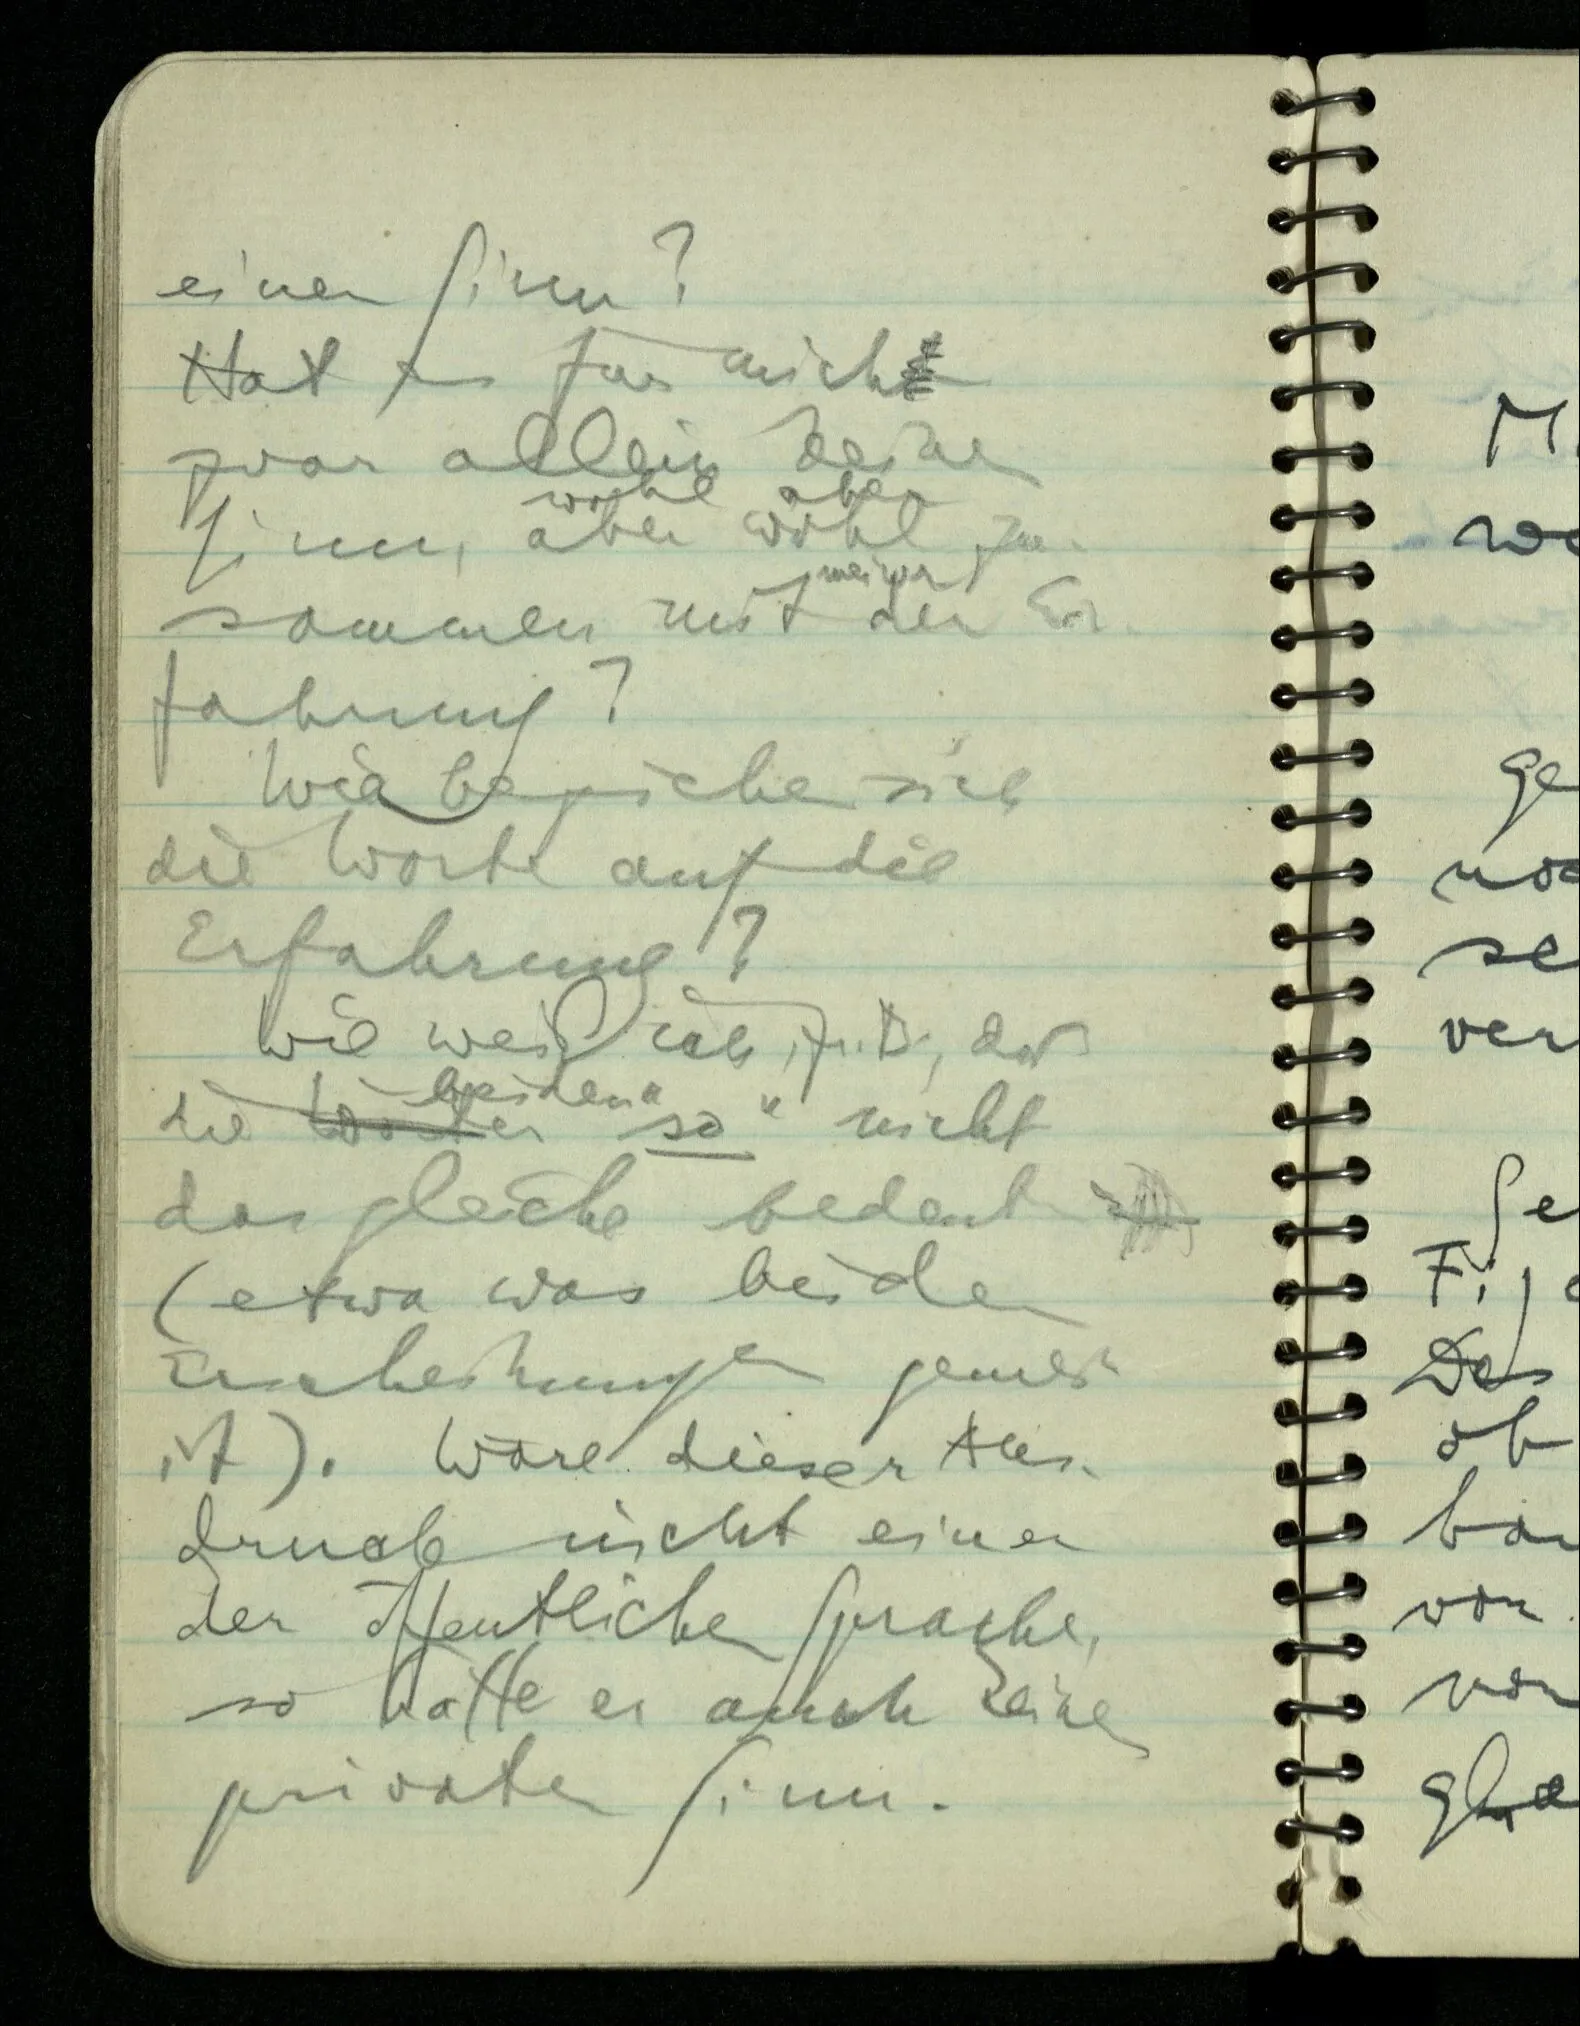 einen Sinn?
Hat es für mich
zwar allein keinen
wohl aber
Sinn, aber wohl zu-
meiner
sammen mit der Er-
fahrung?
Wie beziehen sich
die Worte auf die
Erfahrung?
Wie weiß ich, z.B., daß
beiden
die Wörter "so" nicht
das gleiche bedeuten
(etwa was beiden
Erscheinungen gemein
ist). Wäre dieser Aus-
druck nicht einer
der öffentlichen Sprache,
so hätte er auch keinen
privaten Sinn.
M
wo
ge
noc
se
ver
Se
Fi
Das
ob
bar
von
von